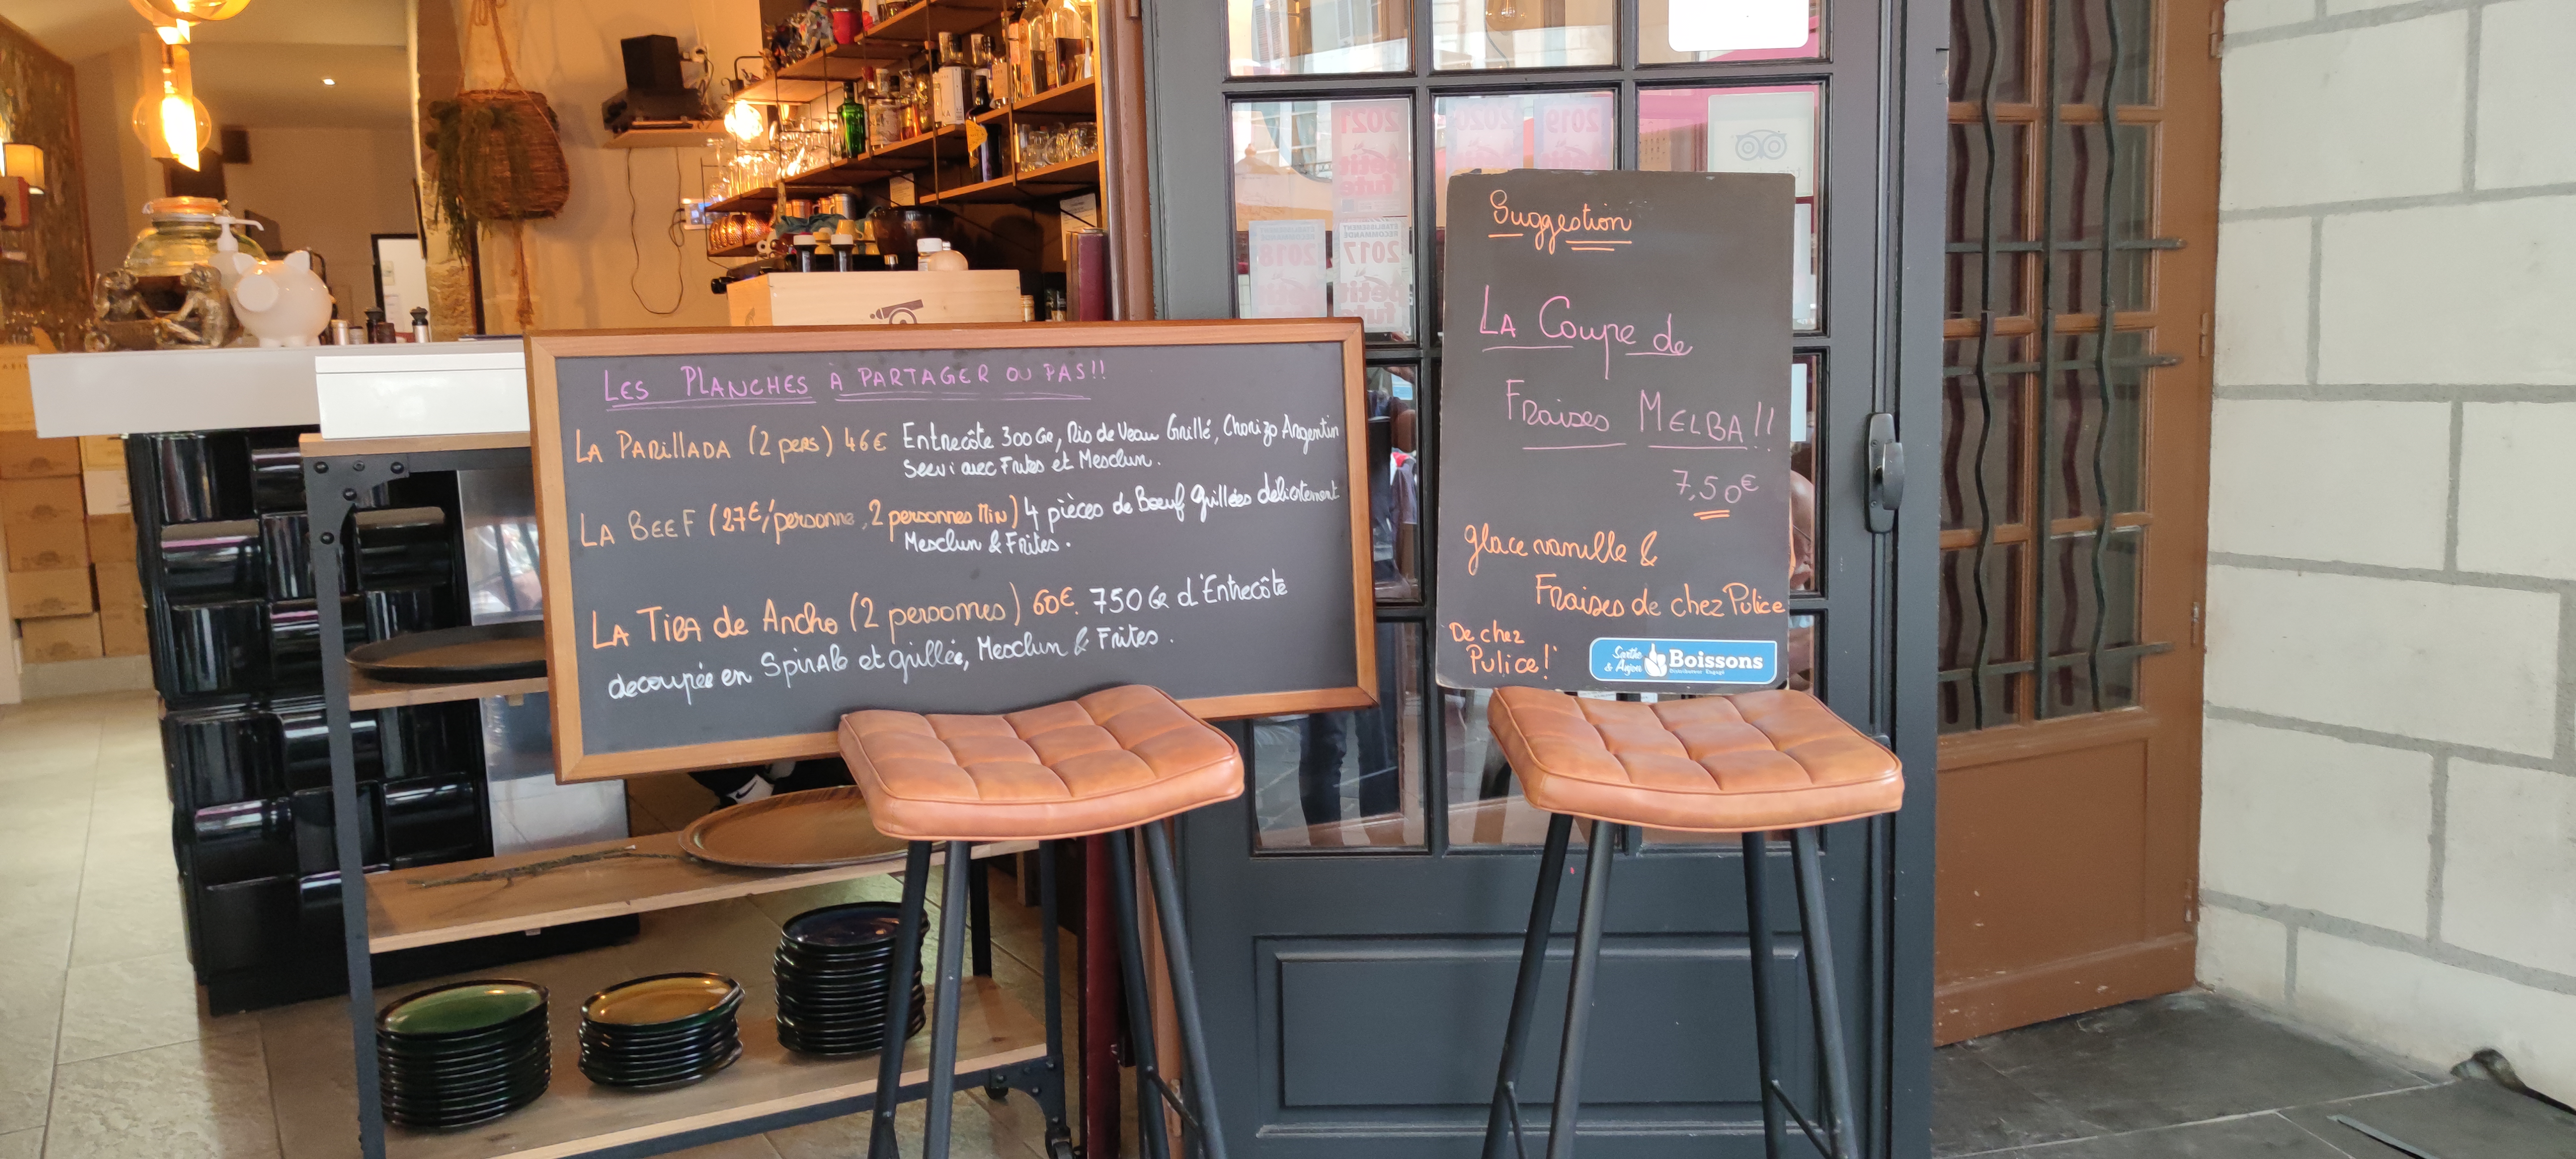 LES PLANCHES À PARTAGER OU PAS!!
LA PARILLADA (2 pers) 46€ Entrecôte 300 Gr, Ris de Veau Grillé, Chorizo Argentin
Servi avec Frites et Mesclun.
LA BEEF (27€/personne, 2 personnes Min) 4 pièces de Boeuf grillées délicatement
Mesclun & Frites.
LA TIRA de Ancho (2 personnes) 60€. 750 Gr d'Entrecôte
decoupée en SpirAle et grillée, Mesclun & Frites.
Suggestion
LA Coupe de
Fraises MELBA!!
7,50€
glace vanille &
Fraises de chez Pulice
De chez
Pulice!
Sarthe
& Anjou
Boissons
2021
petit
futé
2020
2019
2018
ETABLISSEMENT
RECOMMANDÉ
2017
petit
futé